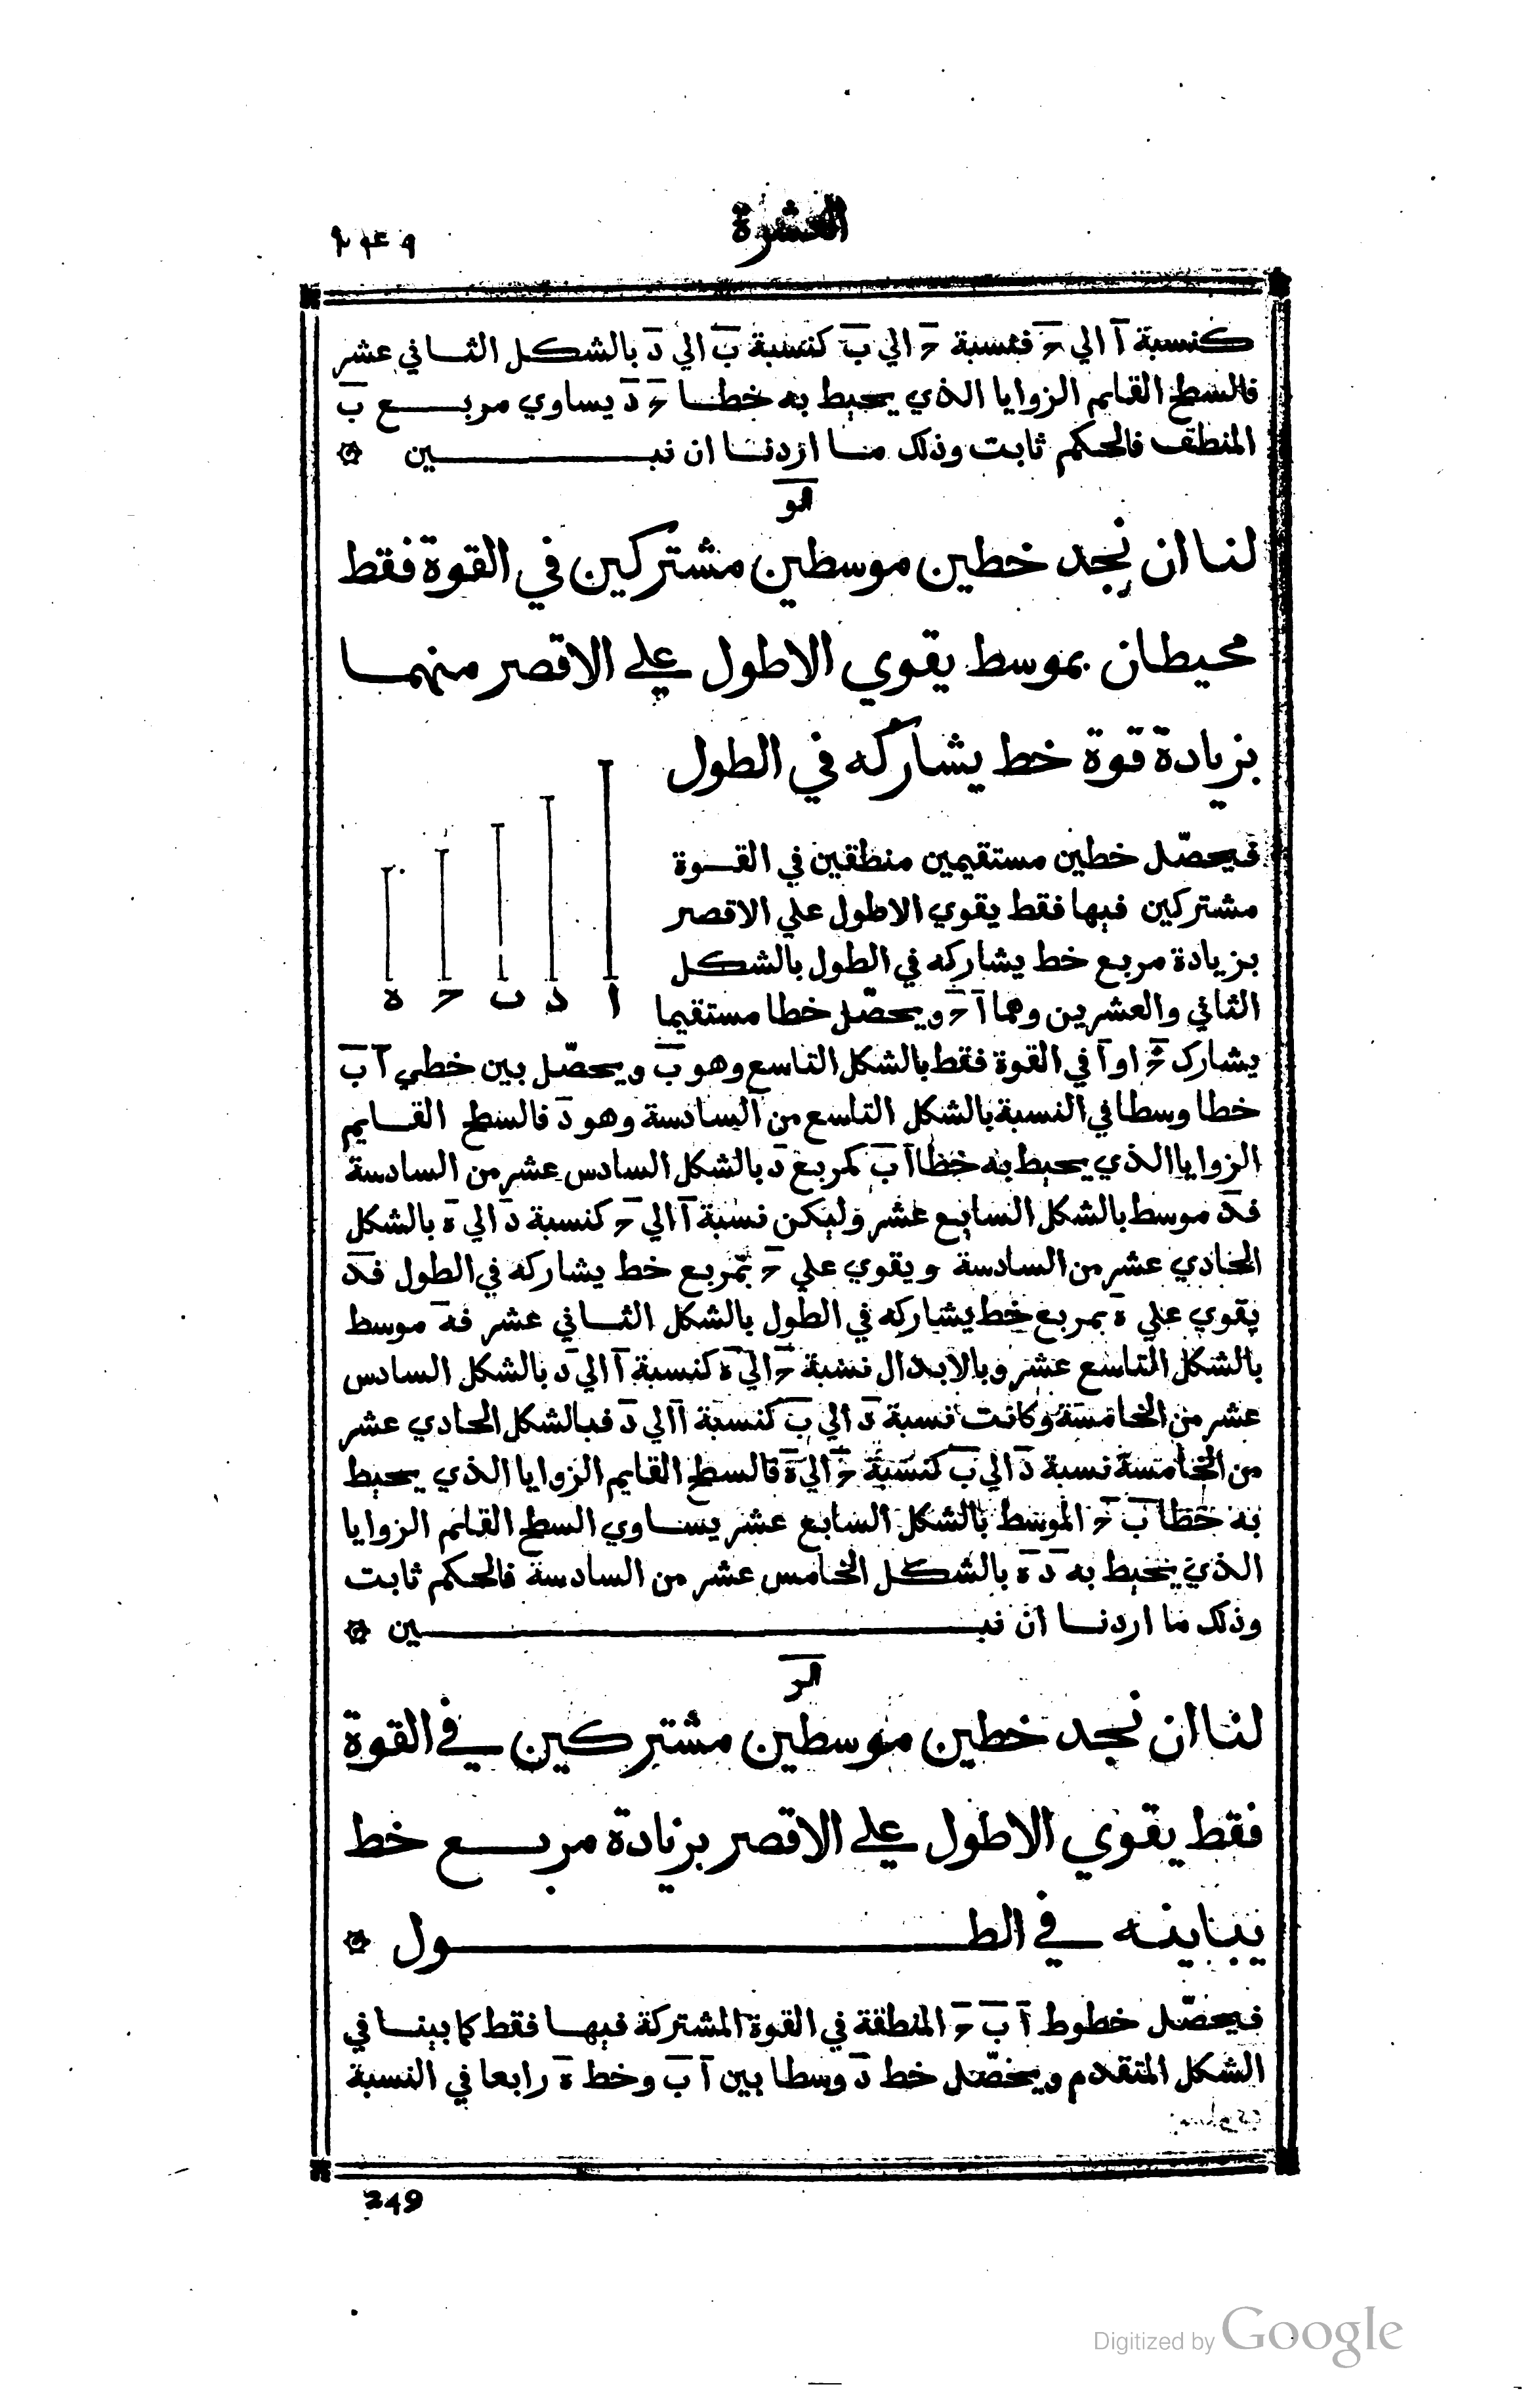 العشرة
٢٤٩
كنسبة آ الي حَ فنسبة حَ الي بَ كنسبة بَ الي دَ بالشكل الثاني عشر
فالسطح القايم الزوايا الذي يحيط به خطا حَ دَ يساوي مربع بَ
المنطق فالحكم ثابت وذلك ما اردنا ان نبين
لنا ان نجد خطين موسطين مشتركين في القوة فقط
محيطان بموسط يقوي الاطول علي الاقصر منهما
بزيادة قوة خط يشاركه في الطول
فيحصّل خطين مستقيمين منطقين في القوة
مشتركين فيها فقط يقوي الاطول علي الاقصر
بزيادة مربع خط يشاركه في الطول بالشكل
الثاني والعشرين وهما آ حَ ويحصّل خطا مستقيما
ا د ب ح ه
يشارك حَ او آ في القوة فقط بالشكل التاسع وهو بَ ويحصّل بين خطي آ بَ
خطا وسطا في النسبة بالشكل التاسع من السادسة وهو دَ فالسطح القايم
الزوايا الذي يحيط به خطا آ بَ كمربع دَ بالشكل السادس عشر من السادسة
فدَ موسط بالشكل السابع عشر وليكن نسبة آ الي حَ كنسبة دَ الي هَ بالشكل
الحادي عشر من السادسة ويقوي علي حَ بمربع خط يشاركه في الطول فدَ
يقوي علي هَ بمربع خط يشاركه في الطول بالشكل الثاني عشر فهَ موسط
بالشكل التاسع عشر وبالابدال نسبة حَ الي هَ كنسبة آ الي دَ بالشكل السادس
عشر من الخامسة وكانت نسبة دَ الي بَ كنسبة آ الي دَ فبالشكل الحادي عشر
من الخامسة نسبة دَ الي بَ كنسبة حَ الي هَ فالسطح القايم الزوايا الذي يحيط
به خطا بَ حَ الموسط بالشكل السابع عشر يساوي السطح القايم الزوايا
الذي يحيط به دَ هَ بالشكل الخامس عشر من السادسة فالحكم ثابت
وذلك ما اردنا ان نبين
لنا ان نجد خطين موسطين مشتركين في القوة
فقط يقوي الاطول علي الاقصر بزيادة مربع خط
يباينه في الطول
فيحصّل خطوط آ بَ حَ المنطقة في القوة المشتركة فيها فقط كما بينا في
الشكل المتقدم ويحصّل خط دَ وسطا بين آ بَ وخط هَ رابعا في النسبة
249
Digitized by Google